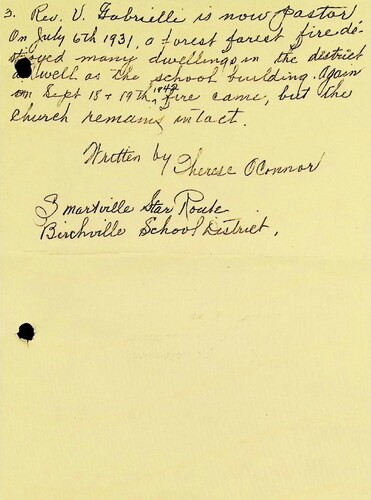 3. Rev. V. Gabrielli is now pastor
On July 6th 1931, a forest forest fire de-
stroyed many dwellings in the district
as well as the school building. Again
on Sept 18 + 19th, 1942 fire came, but the
church remains intact.
Written by Therese OConnor
Smartville Star Route
Birchville School District,